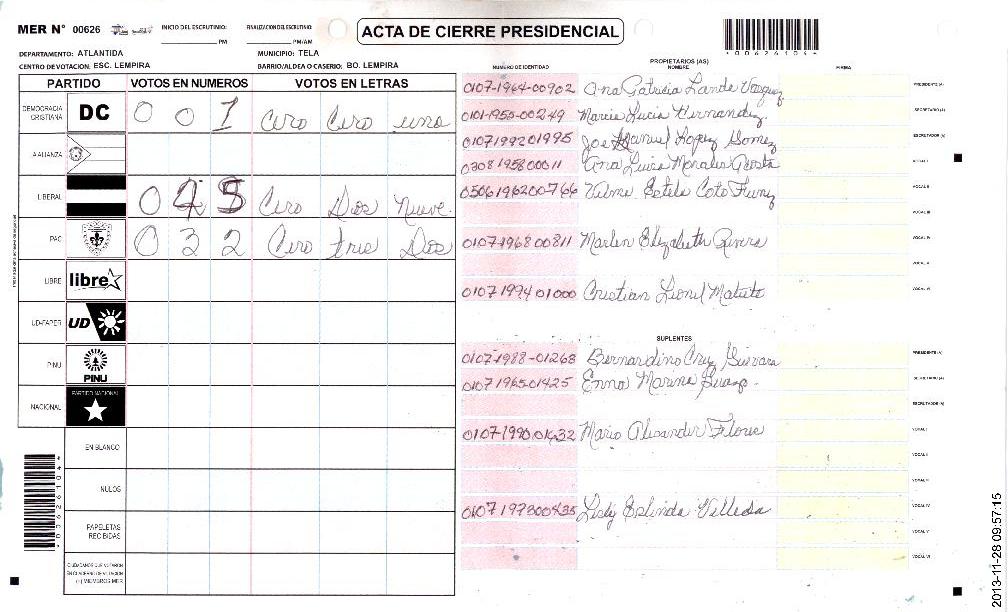 MER N° 00626 INICIO DEL ESCRUTINIO: PM FINALIZACION DEL ESCRUTINIO: PM/AM
ACTA DE CIERRE PRESIDENCIAL
*00626104*
DEPARTAMENTO: ATLANTIDA MUNICIPIO: TELA
CENTRO DE VOTACION: ESC. LEMPIRA BARRIO/ALDEA O CASERIO: BO. LEMPIRA
PARTIDO VOTOS EN NUMEROS VOTOS EN LETRAS
DEMOCRACIA CRISTIANA DC 0 0 1 Cero Cero uno
ALIANZA
LIBERAL 0 Cero Dos Nueve
PAC 0 3 2 Cero tres Dos
LIBRE libre
UD-FAPER UD
PINU PINU
NACIONAL PARTIDO NACIONAL
EN BLANCO
NULOS
PAPELETAS RECIBIDAS
CIUDADANOS QUE VOTARON
EN CUADERNO DE VOTACION
(+) MIEMBROS MER
PROPIETARIOS (AS)
NUMERO DE IDENTIDAD NOMBRE FIRMA
0107-1964-00902 Ana Patricia Lande Vasquez PRESIDENTE (A)
0101-1955-00249 Maria Lucia Hernandez SECRETARIO (A)
0107199201995 Jose Manuel Lopez Gomez ESCRUTADOR (A)
0308195800011 Ana Luisa Morales Acosta VOCAL I
0506196200766 Vilma Estela Coto Funez VOCAL II
VOCAL III
0107-1968 00811 Marlen Elizabeth Rivera VOCAL IV
VOCAL V
0107 1994 01000 Cristian Lionel Matute VOCAL VI
SUPLENTES
0107-1988-01263 Bernardino Cruz Guevara PRESIDENTE (A)
0107 1965 01425 Enna Marina SECRETARIO (A)
ESCRUTADOR (A)
0107-1990 01432 Mario Alexander Flores VOCAL I
VOCAL II
VOCAL III
0107 197300435 Lesly Eslinda Velleda VOCAL IV
VOCAL V
VOCAL VI
*00626104*
2013-11-28 09:57:15